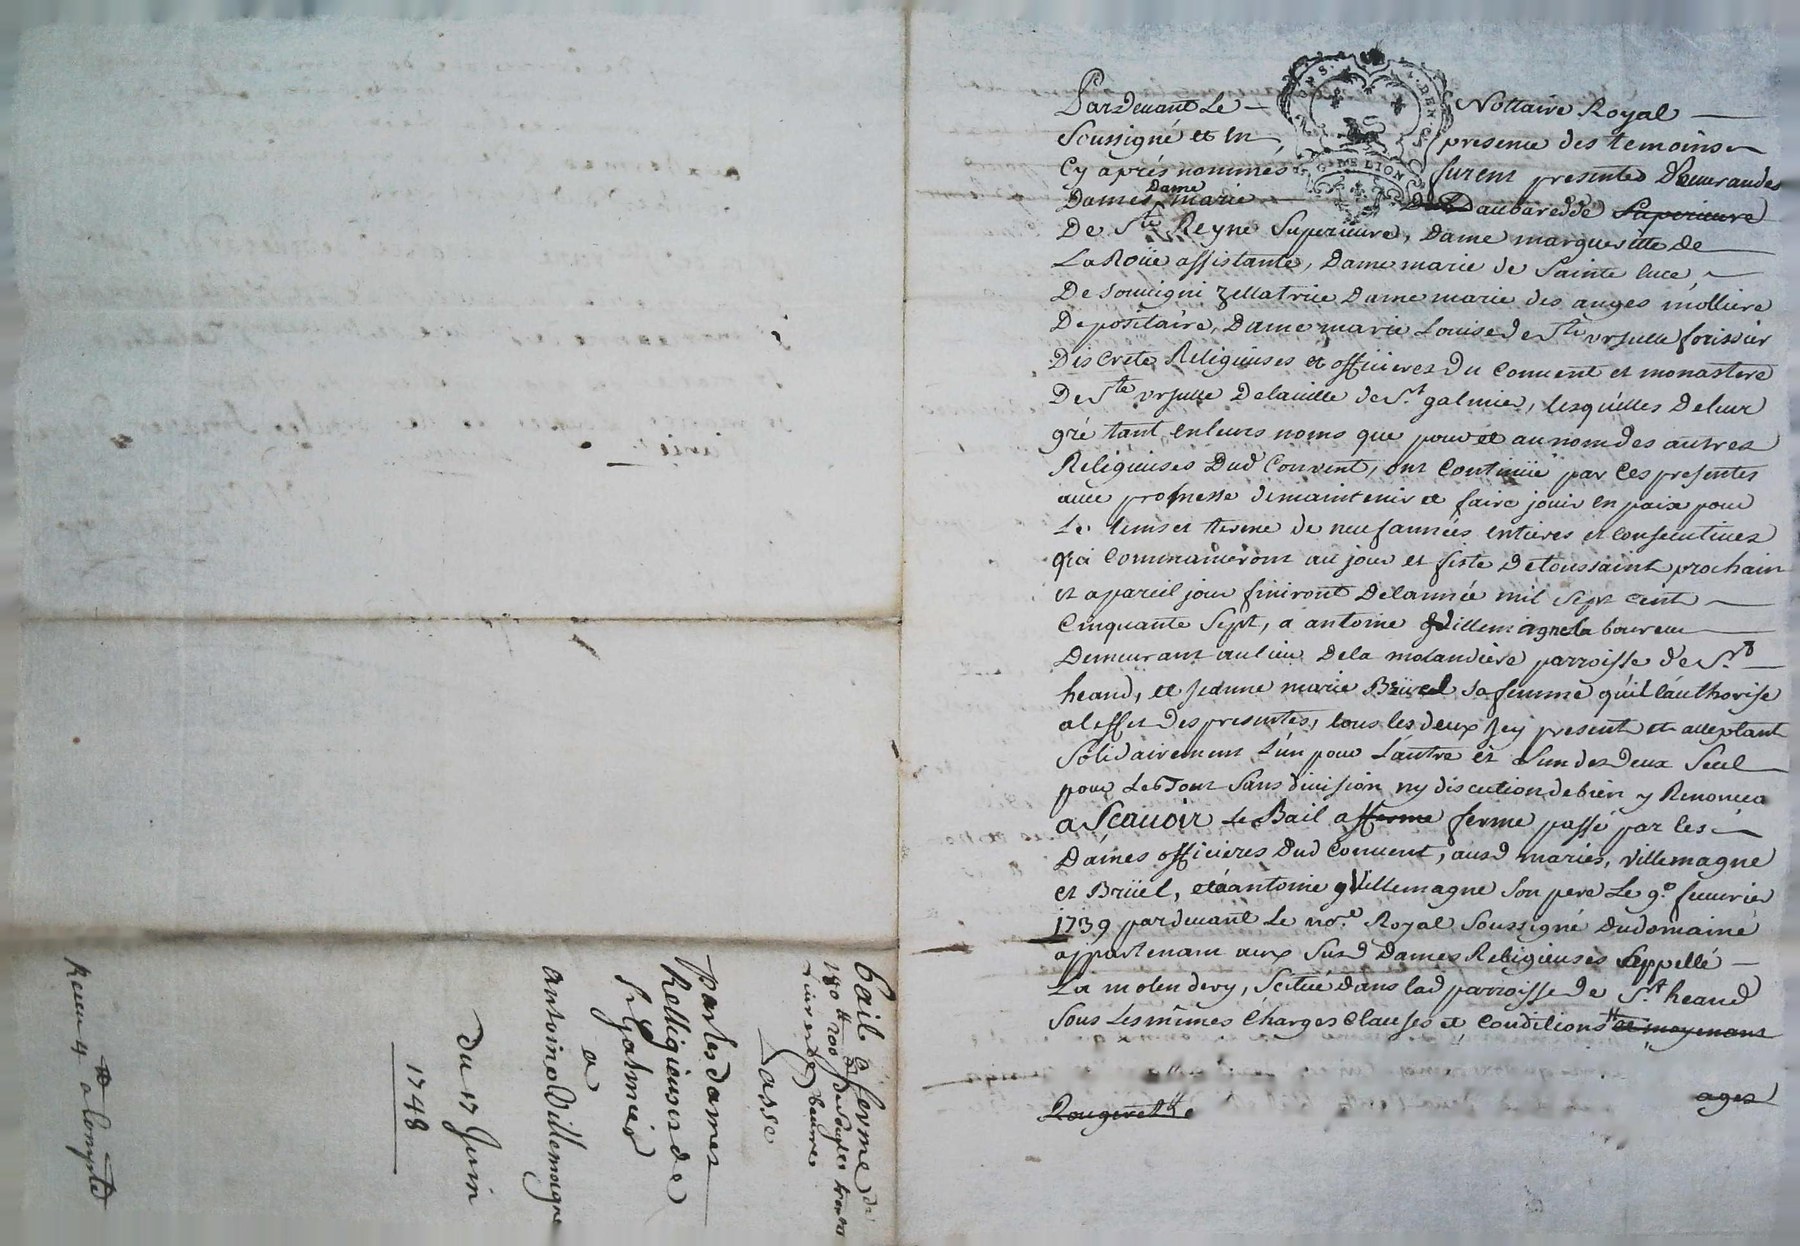 Pardevant Le Nottaire Royal
Soussigné et En presence des temoins
Cy aprés nommés furent presente
Dames Dame marie Daubaredde Superieure
De Ste Reyne Superieure, Dame margueritte de
LaRoüe assistante, Dame marie de Sainte luce
De Zellatrice Dame marie des anges molliere
Depositaire, Dame marie Louise de Ste ursulle forissier
Discrete Religieuses et officieres Du Convent et monastere
De Ste ursulle Delaville de St galmier, lesquelles Deleur
gré tant enleurs noms que pour et aunomdes autres
Religieuses Dud Convent, ont Continüé par Ces presentes
avec promesse demaintenir et faire jouir en paix pour
Le tems et terme de neuf années entieres et Consecutives
Qui Commanceront au jour et feste Detoussaint prochain
et apareil jour finiront Delannée mil sept cent
Cinquante Sept, a antoine Villemagne laboureur
Demeurant aulieu Dela molandiere parroisse de St
heand, et jeanne marie Brüel sa femme quil authorise
aleffet des presentes, tous les deux icy present et acceptant
Solidairement L'un pour L'autre et Lun des deux Seul
pour Le Tout Sans division ny discution debien y Renoncer
a Scavoir Le Bail afferme ferme passé par les
Dames officieres Dud Convent, ausd mariés, Villemagne
et Brüel, et a antoine Villemagne Son pere Le 9e fevrier
1739 pardevant Le nore Royal Soussigné Dudomaine
appartenant aux Susd Dames Religieuses appellé
La molendery, Scitüé Dans lad parroisse de St heand
Sous Les mêmes Charges Clauses et Conditions et moyenant
ages
bail a ferme de
Lasse
par les dames
Relligieuses de
St Galmier
a
antoine Villemagne
Du 17 Juin
1748
Receu 4 a Compte